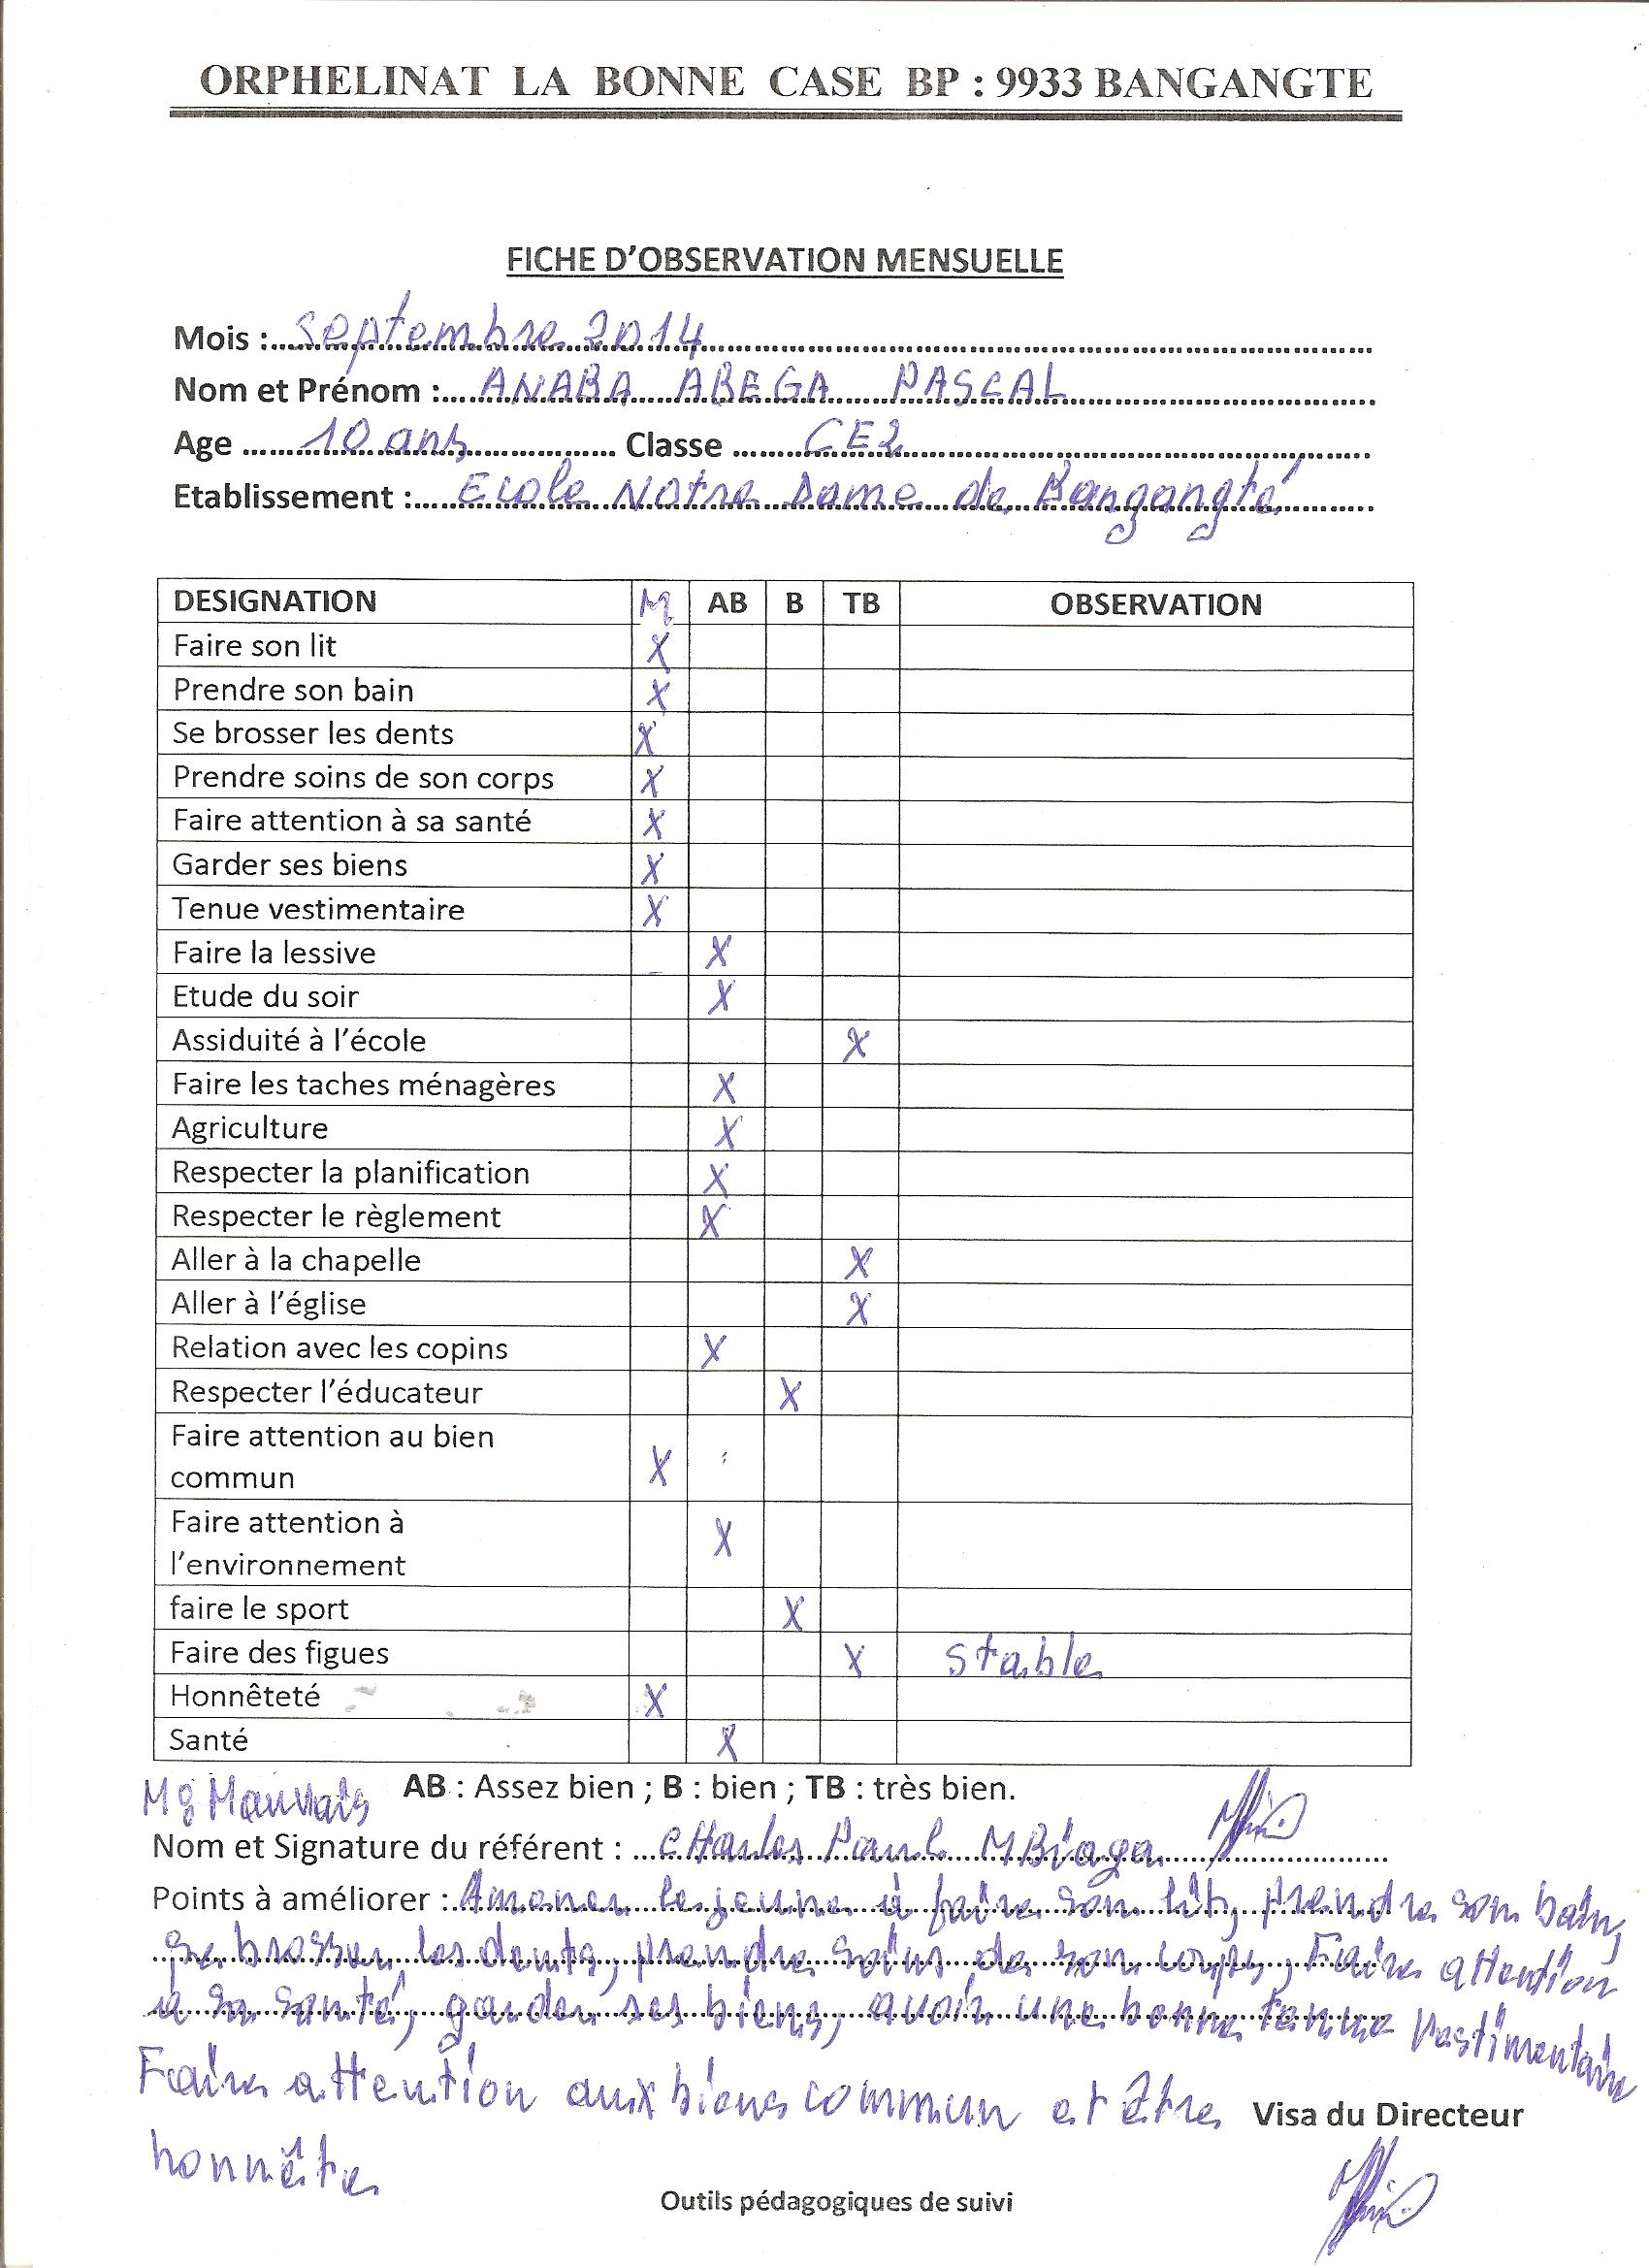 ORPHELINAT LA BONNE CASE BP : 9933 BANGANGTE
FICHE D'OBSERVATION MENSUELLE
Mois : Septembre 2014
Nom et Prénom : ANABA ABEGA PASCAL
Age 10 ans Classe CE2
Etablissement : Ecole Notre Dame de Bangangté
DESIGNATION M AB B TB OBSERVATION
Faire son lit X
Prendre son bain X
Se brosser les dents X
Prendre soins de son corps X
Faire attention à sa santé X
Garder ses biens X
Tenue vestimentaire X
Faire la lessive X
Etude du soir X
Assiduité à l'école X
Faire les taches ménagères X
Agriculture X
Respecter la planification X
Respecter le règlement X
Aller à la chapelle X
Aller à l'église X
Relation avec les copins X
Respecter l'éducateur X
Faire attention au bien
commun X
Faire attention à
l'environnement X
faire le sport X
Faire des figues X stable
Honnêteté X
Santé X
M : Mauvais AB : Assez bien ; B : bien ; TB : très bien.
Nom et Signature du référent : Charles Paul MBiaga
Points à améliorer : Amener le jeune à faire son lit, prendre son bain,
se brosser les dents, prendre soins de son corps, Faire attention
à sa santé, garder ses biens, avoir une bonne tenue vestimentaire
Faire attention aux biens commun et être
honnête
Visa du Directeur
Outils pédagogiques de suivi